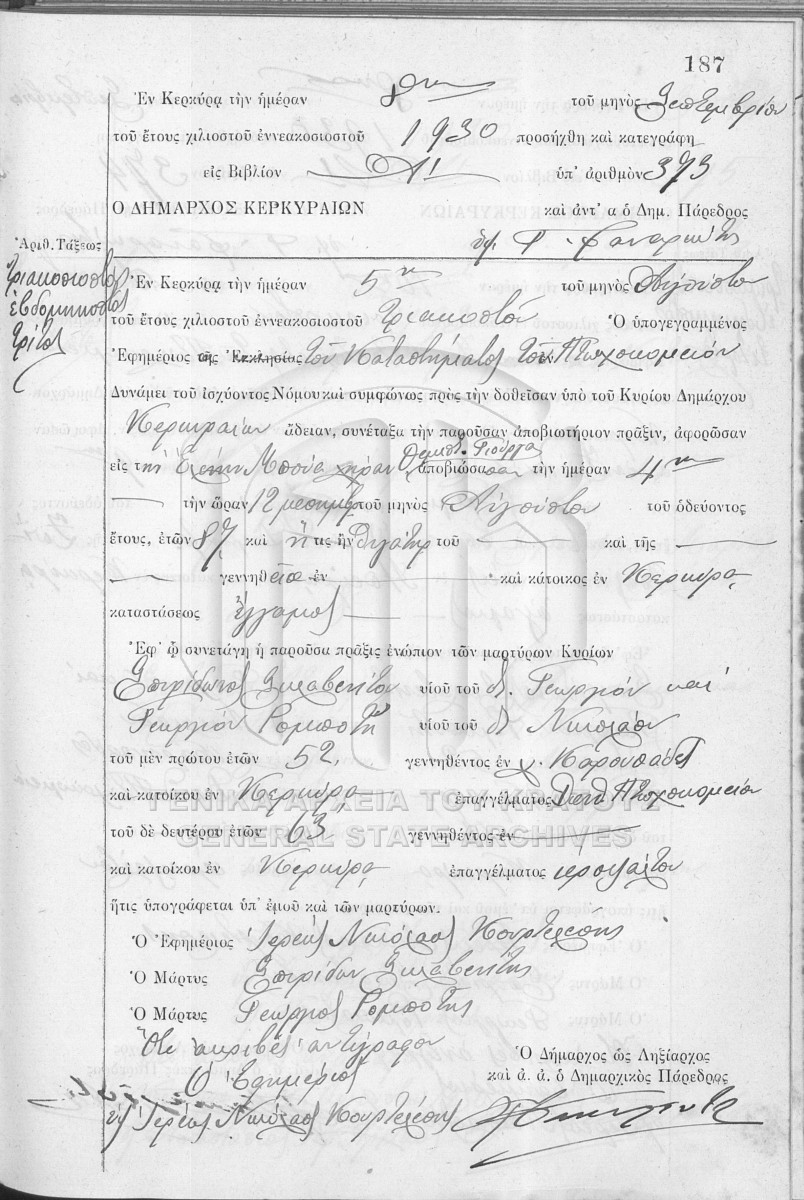 187
Ἐν Κερκύρᾳ τὴν ἡμέραν 8ην τοῦ μηνὸς Σεπτεμβρίου
τοῦ ἔτους χιλιοστοῦ ἐννεακοσιοστοῦ 1930 προσήχθη καὶ κατεγράφη
εἰς Βιβλίον Α! ὑπ' ἀριθμὸν 373
Ο ΔΗΜΑΡΧΟΣ ΚΕΡΚΥΡΑΙΩΝ καὶ ἀντ' α ὁ Δημ. Πάρεδρος
Ἀριθ. Τάξεως
Τριακοσιοστὸς
ἑβδομηκοστὸς
τρίτος
Ἐν Κερκύρᾳ τὴν ἡμέραν 5ην τοῦ μηνὸς Αὐγούστου
τοῦ ἔτους χιλιοστοῦ ἐννεακοσιοστοῦ τριακοστοῦ Ὁ ὑπογεγραμμένος
Ἐφημέριος τῆς Ἐκκλησίας τοῦ Καταστήματος τοῦ Πτωχοκομείου
Δυνάμει τοῦ ἰσχύοντος Νόμου καὶ συμφώνως πρὸς τὴν δοθεῖσαν ὑπὸ τοῦ Κυρίου Δημάρχου
Κερκυραίων ἄδειαν, συνέταξα τὴν παροῦσαν ἀποβιωτήριον πρᾶξιν, ἀφορῶσαν
εἰς τὴν Ἑλένην Μπούα χήραν Γιούργα ἀποβιώσασαν τὴν ἡμέραν 4ην
τὴν ὥραν 12 μεσημβ. τοῦ μηνὸς Αὐγούστου τοῦ ὁδεύοντος
ἔτους, ἐτῶν 87, καὶ ἥτις ἦν θυγάτηρ τοῦ καὶ τῆς
γεννηθεῖσα ἐν καὶ κάτοικος ἐν Κερκύρᾳ,
καταστάσεως ἔγγαμος
Ἐφ' ᾧ συνετάγη ἡ παροῦσα πρᾶξις ἐνώπιον τῶν μαρτύρων Κυρίων
Σπυρίδωνος Σκλαβενίτου υἱοῦ τοῦ Γεωργίου καὶ
Γεωργίου Ρομποτῆ υἱοῦ τοῦ Νικολάου
τοῦ μὲν πρώτου ἐτῶν 52, γεννηθέντος ἐν χ. Καρουσάδες
καὶ κατοίκου ἐν Κερκύρᾳ ἐπαγγέλματος Πτωχοκομείου
τοῦ δὲ δευτέρου ἐτῶν 63 γεννηθέντος ἐν
καὶ κατοίκου ἐν Κερκύρᾳ, ἐπαγγέλματος ἱεροψάλτου
ἥτις ὑπογράφεται ὑπ' ἐμοῦ καὶ τῶν μαρτύρων.
Ὁ Ἐφημέριος Ἱερεὺς Νικόλαος Κουρτελέσης
Ὁ Μάρτυς Σπυρίδων Σκλαβενίτης
Ὁ Μάρτυς Γεώργιος Ρομποτῆς
Ὅτι ἀκριβὲς ἀντίγραφον
Ὁ Ἐφημέριος
Ἱερεὺς Νικόλαος Κουρτελέσης
Ὁ Δήμαρχος ὡς Ληξίαρχος
καὶ ἀ. ἀ. ὁ Δημαρχικὸς Πάρεδρος
ΓΕΝΙΚΑ ΑΡΧΕΙΑ ΤΟΥ ΚΡΑΤΟΥΣ
GENERAL STATE ARCHIVES